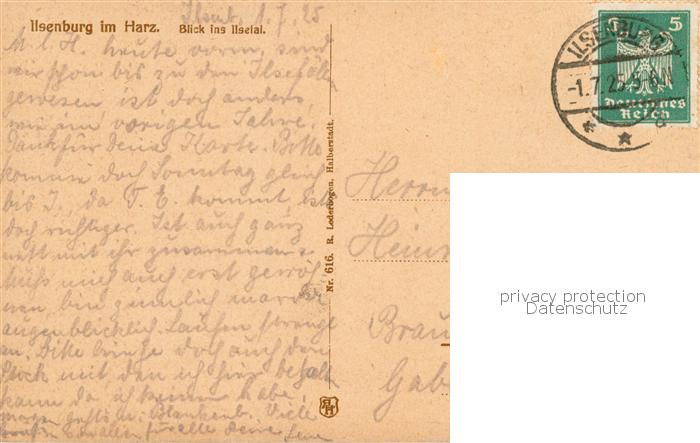 Ilsenb. 1.7.25
Ilsenburg im Harz. Blick ins Ilsetal.
M. l. H. heute vorm. sind
wir schon bis zu den Ilsefäll
gewesen ist doch anders
wie im vorigen Jahre.
Dank für deine Karte. Bitte
komme doch Sonntag gleich
bis I. da T. E. kommt ist
doch richtiger. Ist auch ganz
nett mit ihr zusammen
muß mich auch erst gewöh
nen bin ziemlich
augenblicklich. Laufen strengt
an. Bitte bringe doch auch den
Stock mit, den ich hier
kann da ich keinen habe,
morgen gehts n. Blankenb. Viele
für alle deine
Nr. 616. R. Lederbogen, Halberstadt.
ILSENBURG
-1.7.25.
5
Deutsches
Reich
Herrn
Hein
Brau
Gab
privacy protection
Datenschutz